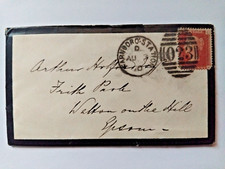 FARNBORO-STATION
C
AU 7
023
Arthur
Frith Park
Walton on the Hill
Epsom